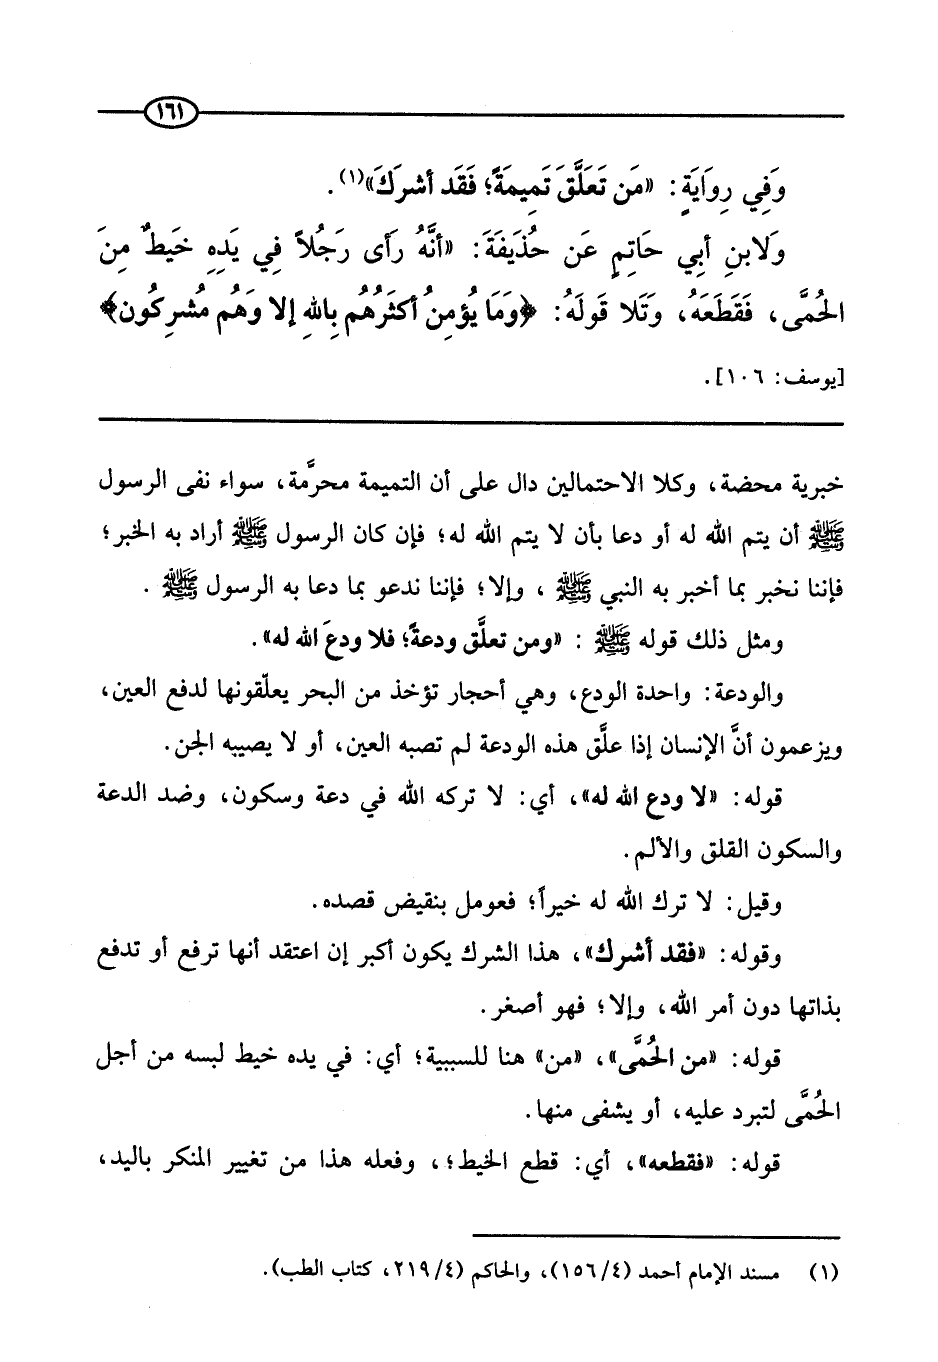 ١٦١
وَفِي رِوَايَةٍ: «مَن تَعَلَّقَ تَمِيمَةً؛ فَقَد أشرَكَ»(١).
وَلابنِ أبِي حَاتِمٍ عَن حُذَيفَةَ: «أنَّهُ رَأى رَجُلاً فِي يَدِهِ خَيطٌ مِنَ
الحُمَّى، فَقَطَعَهُ، وَتَلا قَولَهُ: ﴿وَمَا يُؤمِنُ أكثَرُهُم بِاللهِ إلا وَهُم مُشرِكُون﴾
[يوسف: ١٠٦].
خبرية محضة، وكلا الاحتمالين دال على أن التميمة محرَّمة، سواء نفى الرسول
ﷺ أن يتم الله له أو دعا بأن لا يتم الله له؛ فإن كان الرسول ﷺ أراد به الخبر؛
فإننا نخبر بما أخبر به النبي ﷺ ، وإلا؛ فإننا ندعو بما دعا به الرسول ﷺ .
ومثل ذلك قوله ﷺ : «ومن تعلَّق ودعةً؛ فلا ودعَ الله له».
والودعة: واحدة الودع، وهي أحجار تؤخذ من البحر يعلّقونها لدفع العين،
ويزعمون أنَّ الإنسان إذا علَّق هذه الودعة لم تصبه العين، أو لا يصيبه الجن.
قوله: «لا ودع الله له»، أي: لا تركه الله في دعة وسكون، وضد الدعة
والسكون القلق والألم.
وقيل: لا ترك الله له خيراً؛ فعومل بنقيض قصده.
وقوله: «فقد أشرك»، هذا الشرك يكون أكبر إن اعتقد أنها ترفع أو تدفع
بذاتها دون أمر الله، وإلا؛ فهو أصغر.
قوله: «من الحُمَّى»، «من» هنا للسببية؛ أي: في يده خيط لبسه من أجل
الحُمَّى لتبرد عليه، أو يشفى منها.
قوله: «فقطعه»، أي: قطع الخيط؛، وفعله هذا من تغيير المنكر باليد،
(١) مسند الإمام أحمد (٤/١٥٦)، والحاكم (٤/٢١٩، كتاب الطب).